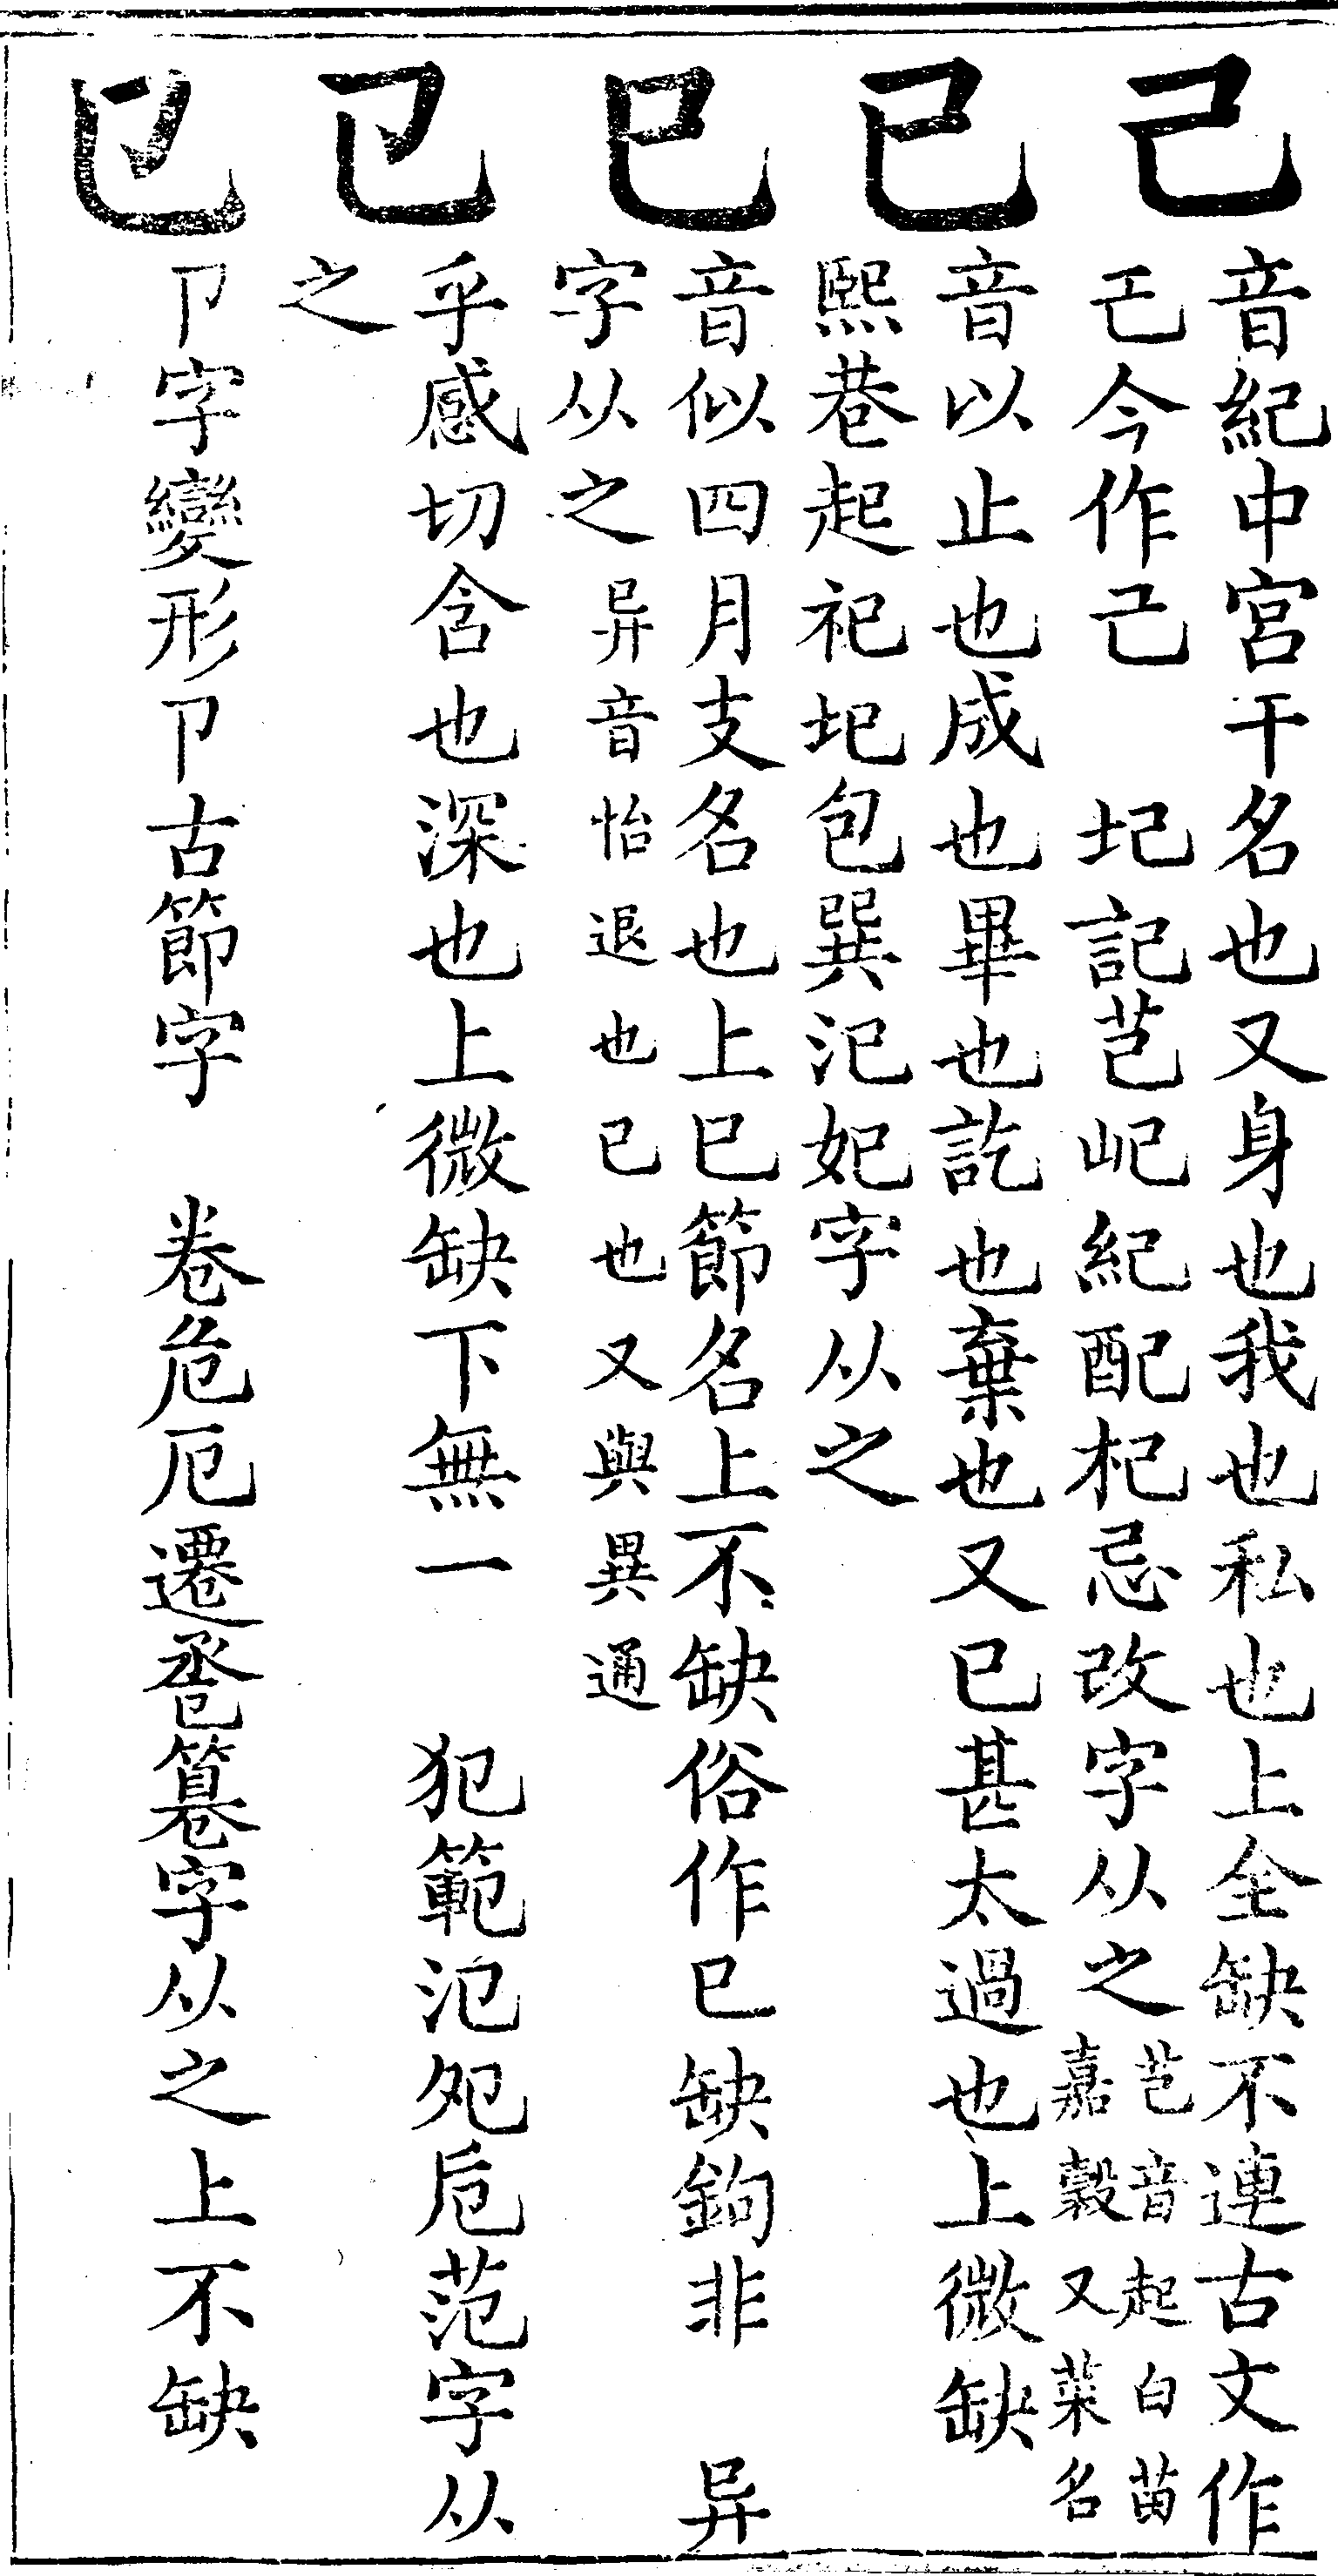 己音紀中宮干名也又身也我也私也上全缺不連古文作
今作己 圮記芑屺紀配杞忌改字从之
芑音起白苗
嘉穀又菜名
已音以止也成也畢也訖也棄也又已甚太過也上微缺
熙巷起祀圯包巽汜妃字从之
巳音似四月支名也上巳節名上不缺俗作已缺鉤非 异
字从之异音怡退也已也又與異通
㔾乎感切含也深也上微缺下無一 犯範氾夗卮范字从
之
卩字變形卩古節字 卷危厄遷卺字从之上不缺